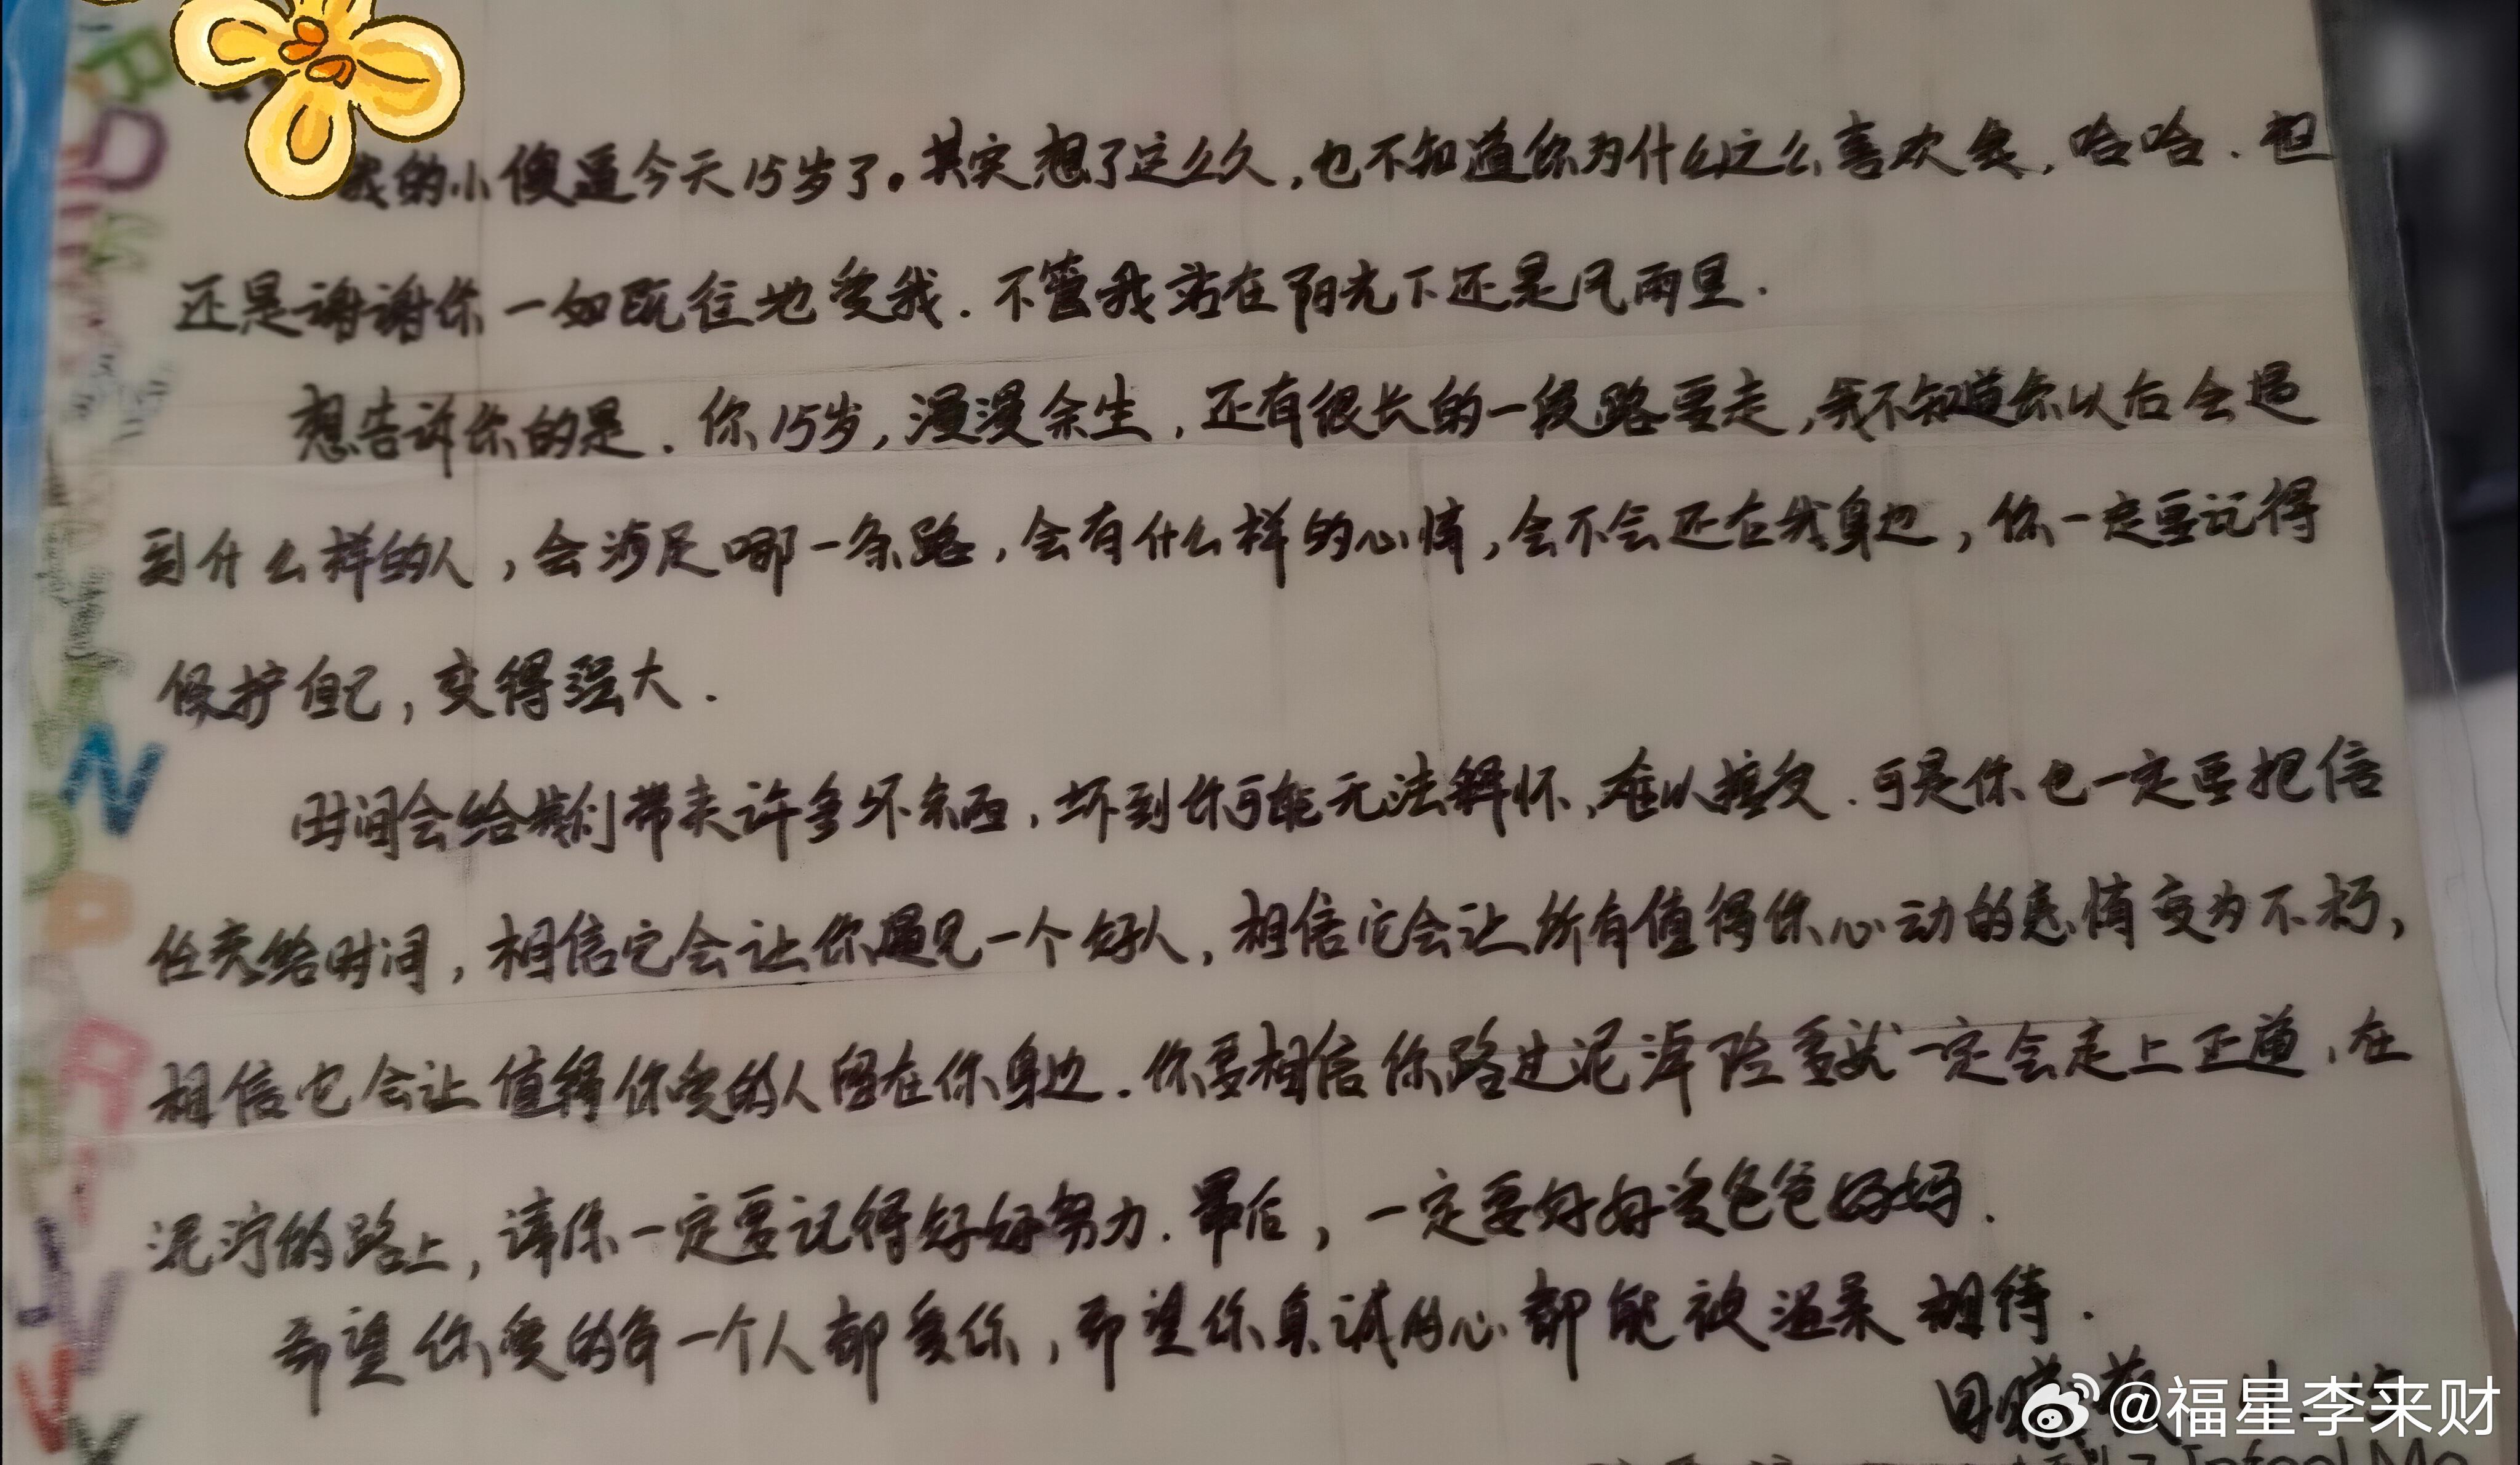 我的小傻逼今天15岁了。其实想了这么久，也不知道你为什么这么喜欢我，哈哈.但
还是谢谢你一如既往地爱我.不管我站在阳光下还是风雨里.
想告诉你的是.你15岁，漫漫余生，还有很长的一段路要走，我不知道你以后会遇
到什么样的人，会涉足哪一条路，会有什么样的心情，会不会还在我身边，你一定要记得
保护自己，变得强大.
时间会给我们带来许多坏东西，坏到你可能无法释怀，难以接受.可是你也一定要把信
任交给时间，相信它会让你遇见一个好人，相信它会让所有值得你心动的感情变为不朽，
相信它会让值得你爱的人留在你身边.你要相信你路过泥潭险重就一定会走上正道，在
泥泞的路上，请你一定要记得好好努力.最后，一定要好好爱爸爸妈妈.
希望你爱的每一个人都爱你，希望你真诚的心都能被温柔相待.
@福星李来财
N
V